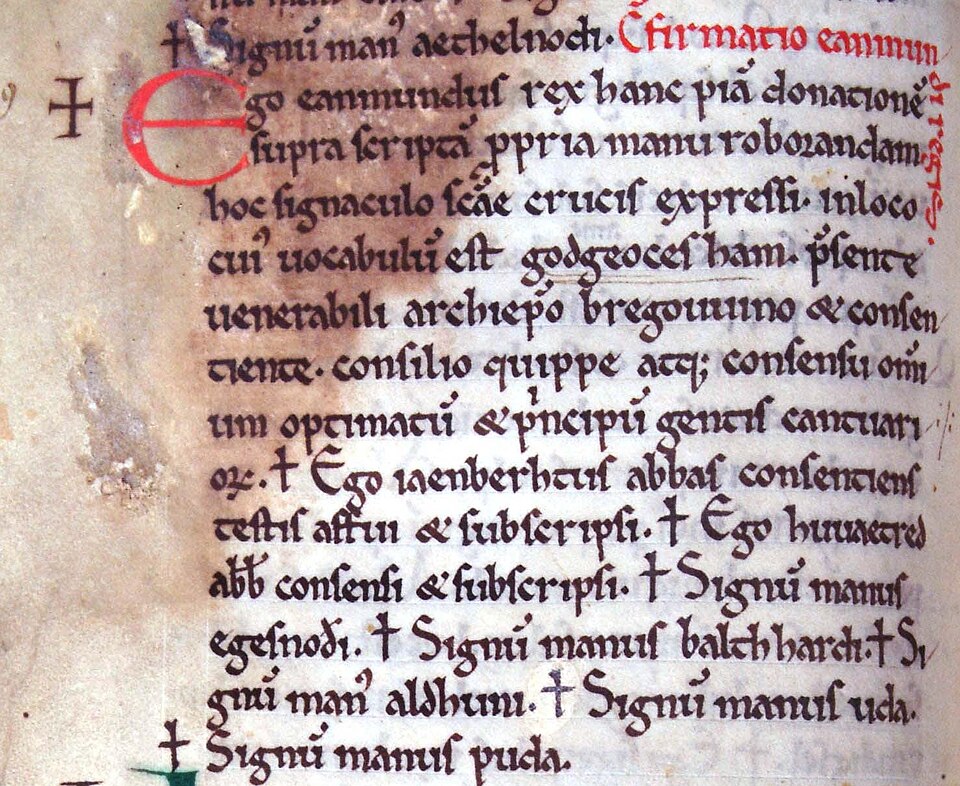 † Signū man᾽ aethelnodi. Cfirmatio eanmun
di regis.
Ego eanmundus rex hanc piā donationē
supra scriptā ppria manu roborandam
hoc signaculo scāe crucis expressi. inloco
cui᾽ uocabulū est godgeoces ham. p̄sente
uenerabili archiep̄o bregouuino & consen
tiente. consilio quippe atq; consensu om̄i
um optimatū & pⁱncipū gentis cantuari
oꝝ. † Ego iaenberhtus abbas consentiens
testis astiti & subscripsi. † Ego huuaetred
abb̄ consensi & subscripsi. † Signū manus
egesnoði. † Signū manus balthhardi. † Si
gnū man᾽ aldhuni. † Signū manus uda.
† Signū manus puda.